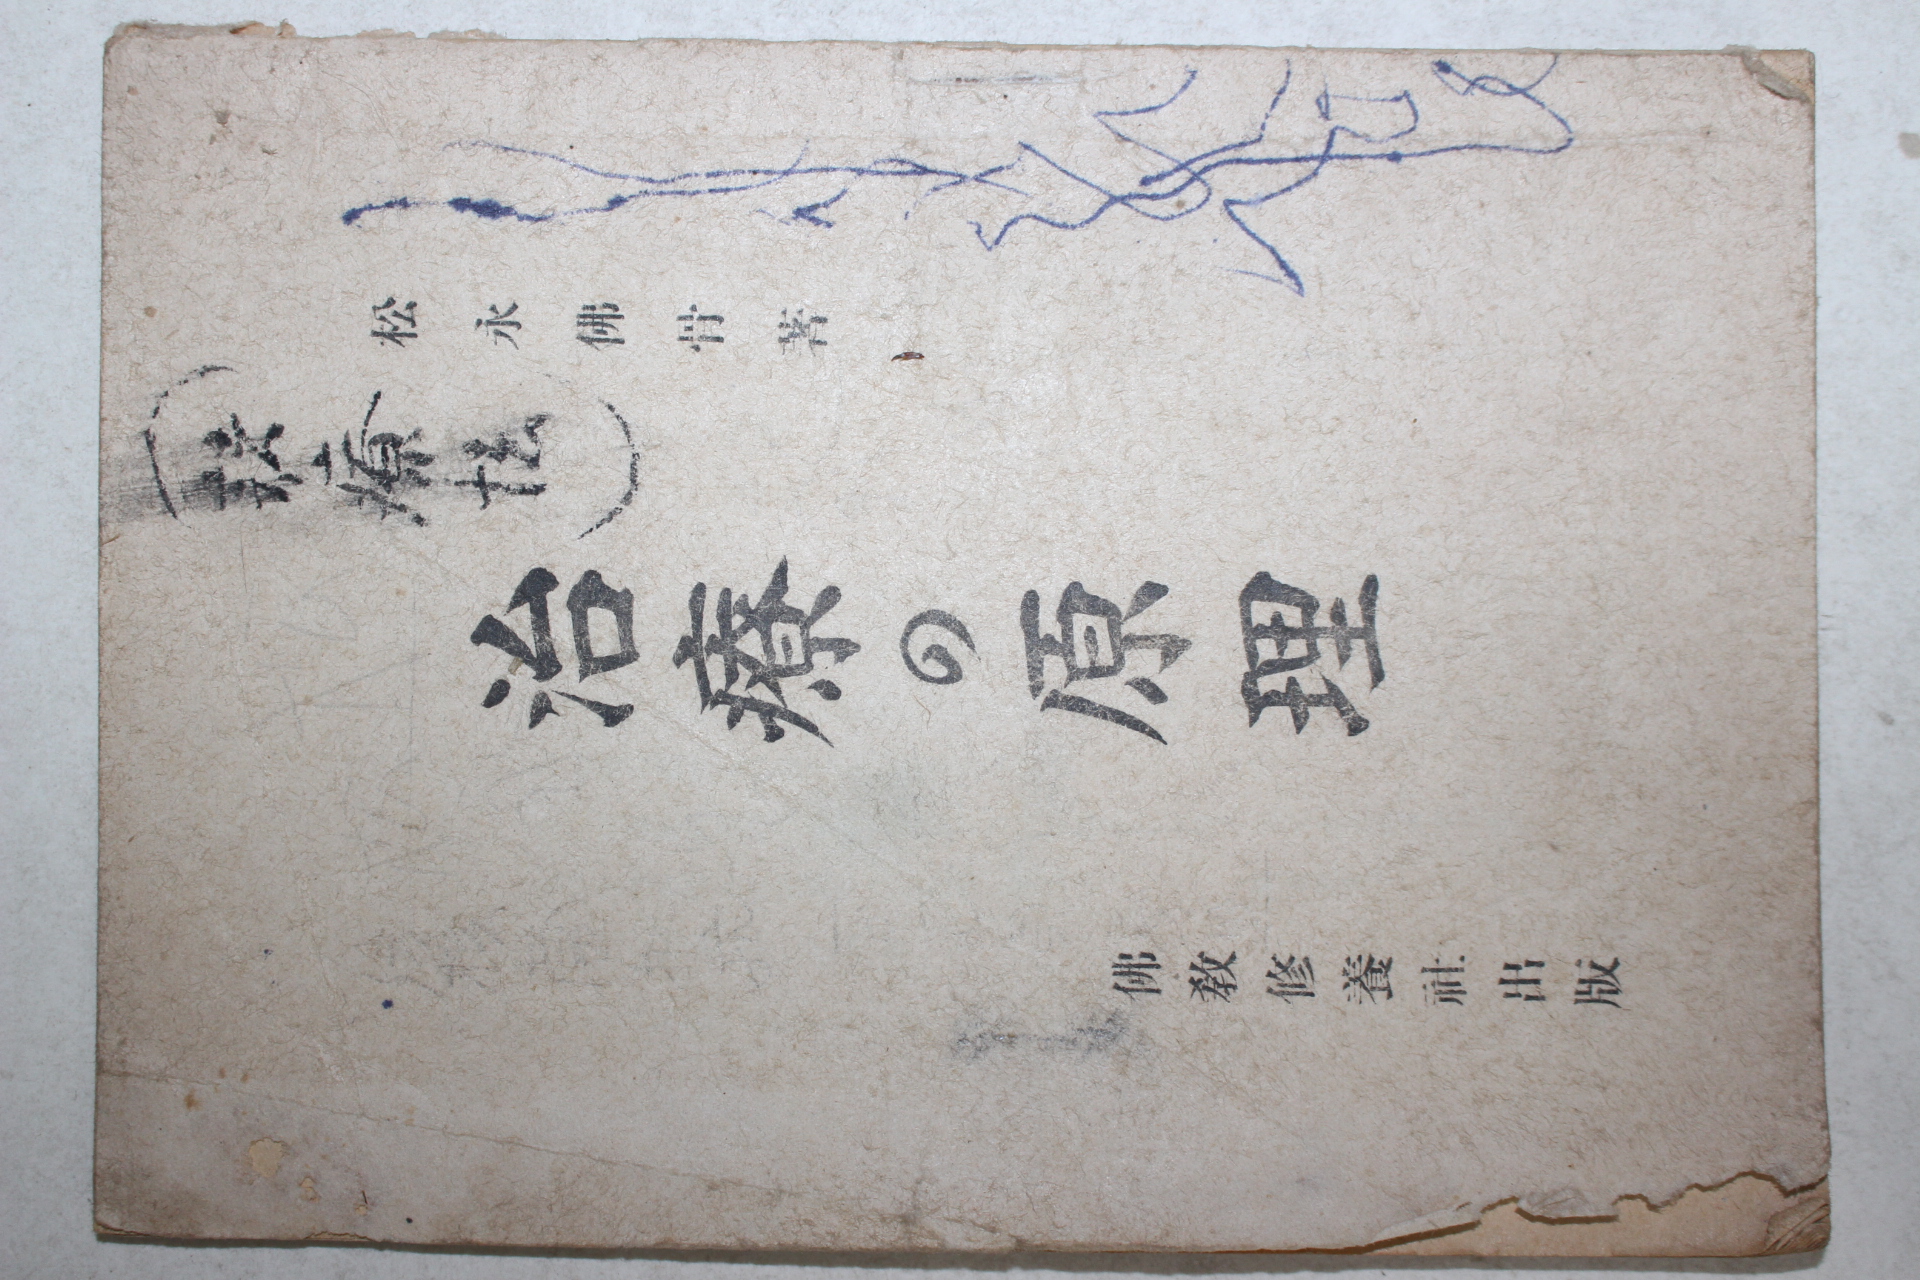 松永佛骨著
治療の原理
佛教修養社出版